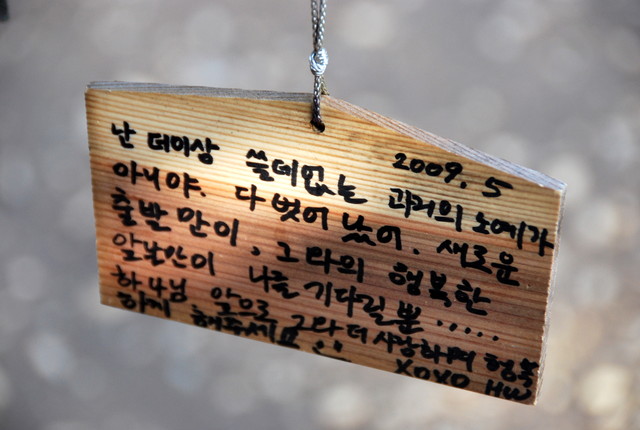 2009. 5
난 더이상 쓸데없는 과거의 노예가
아니야. 다 벗어 났어. 새로운
출발만이, 그와의 행복한
앞날만이 나를 기다릴뿐.....
하나님 앞으로 그와 더 사랑하며 행복
하게 해주세요
XOXO HW